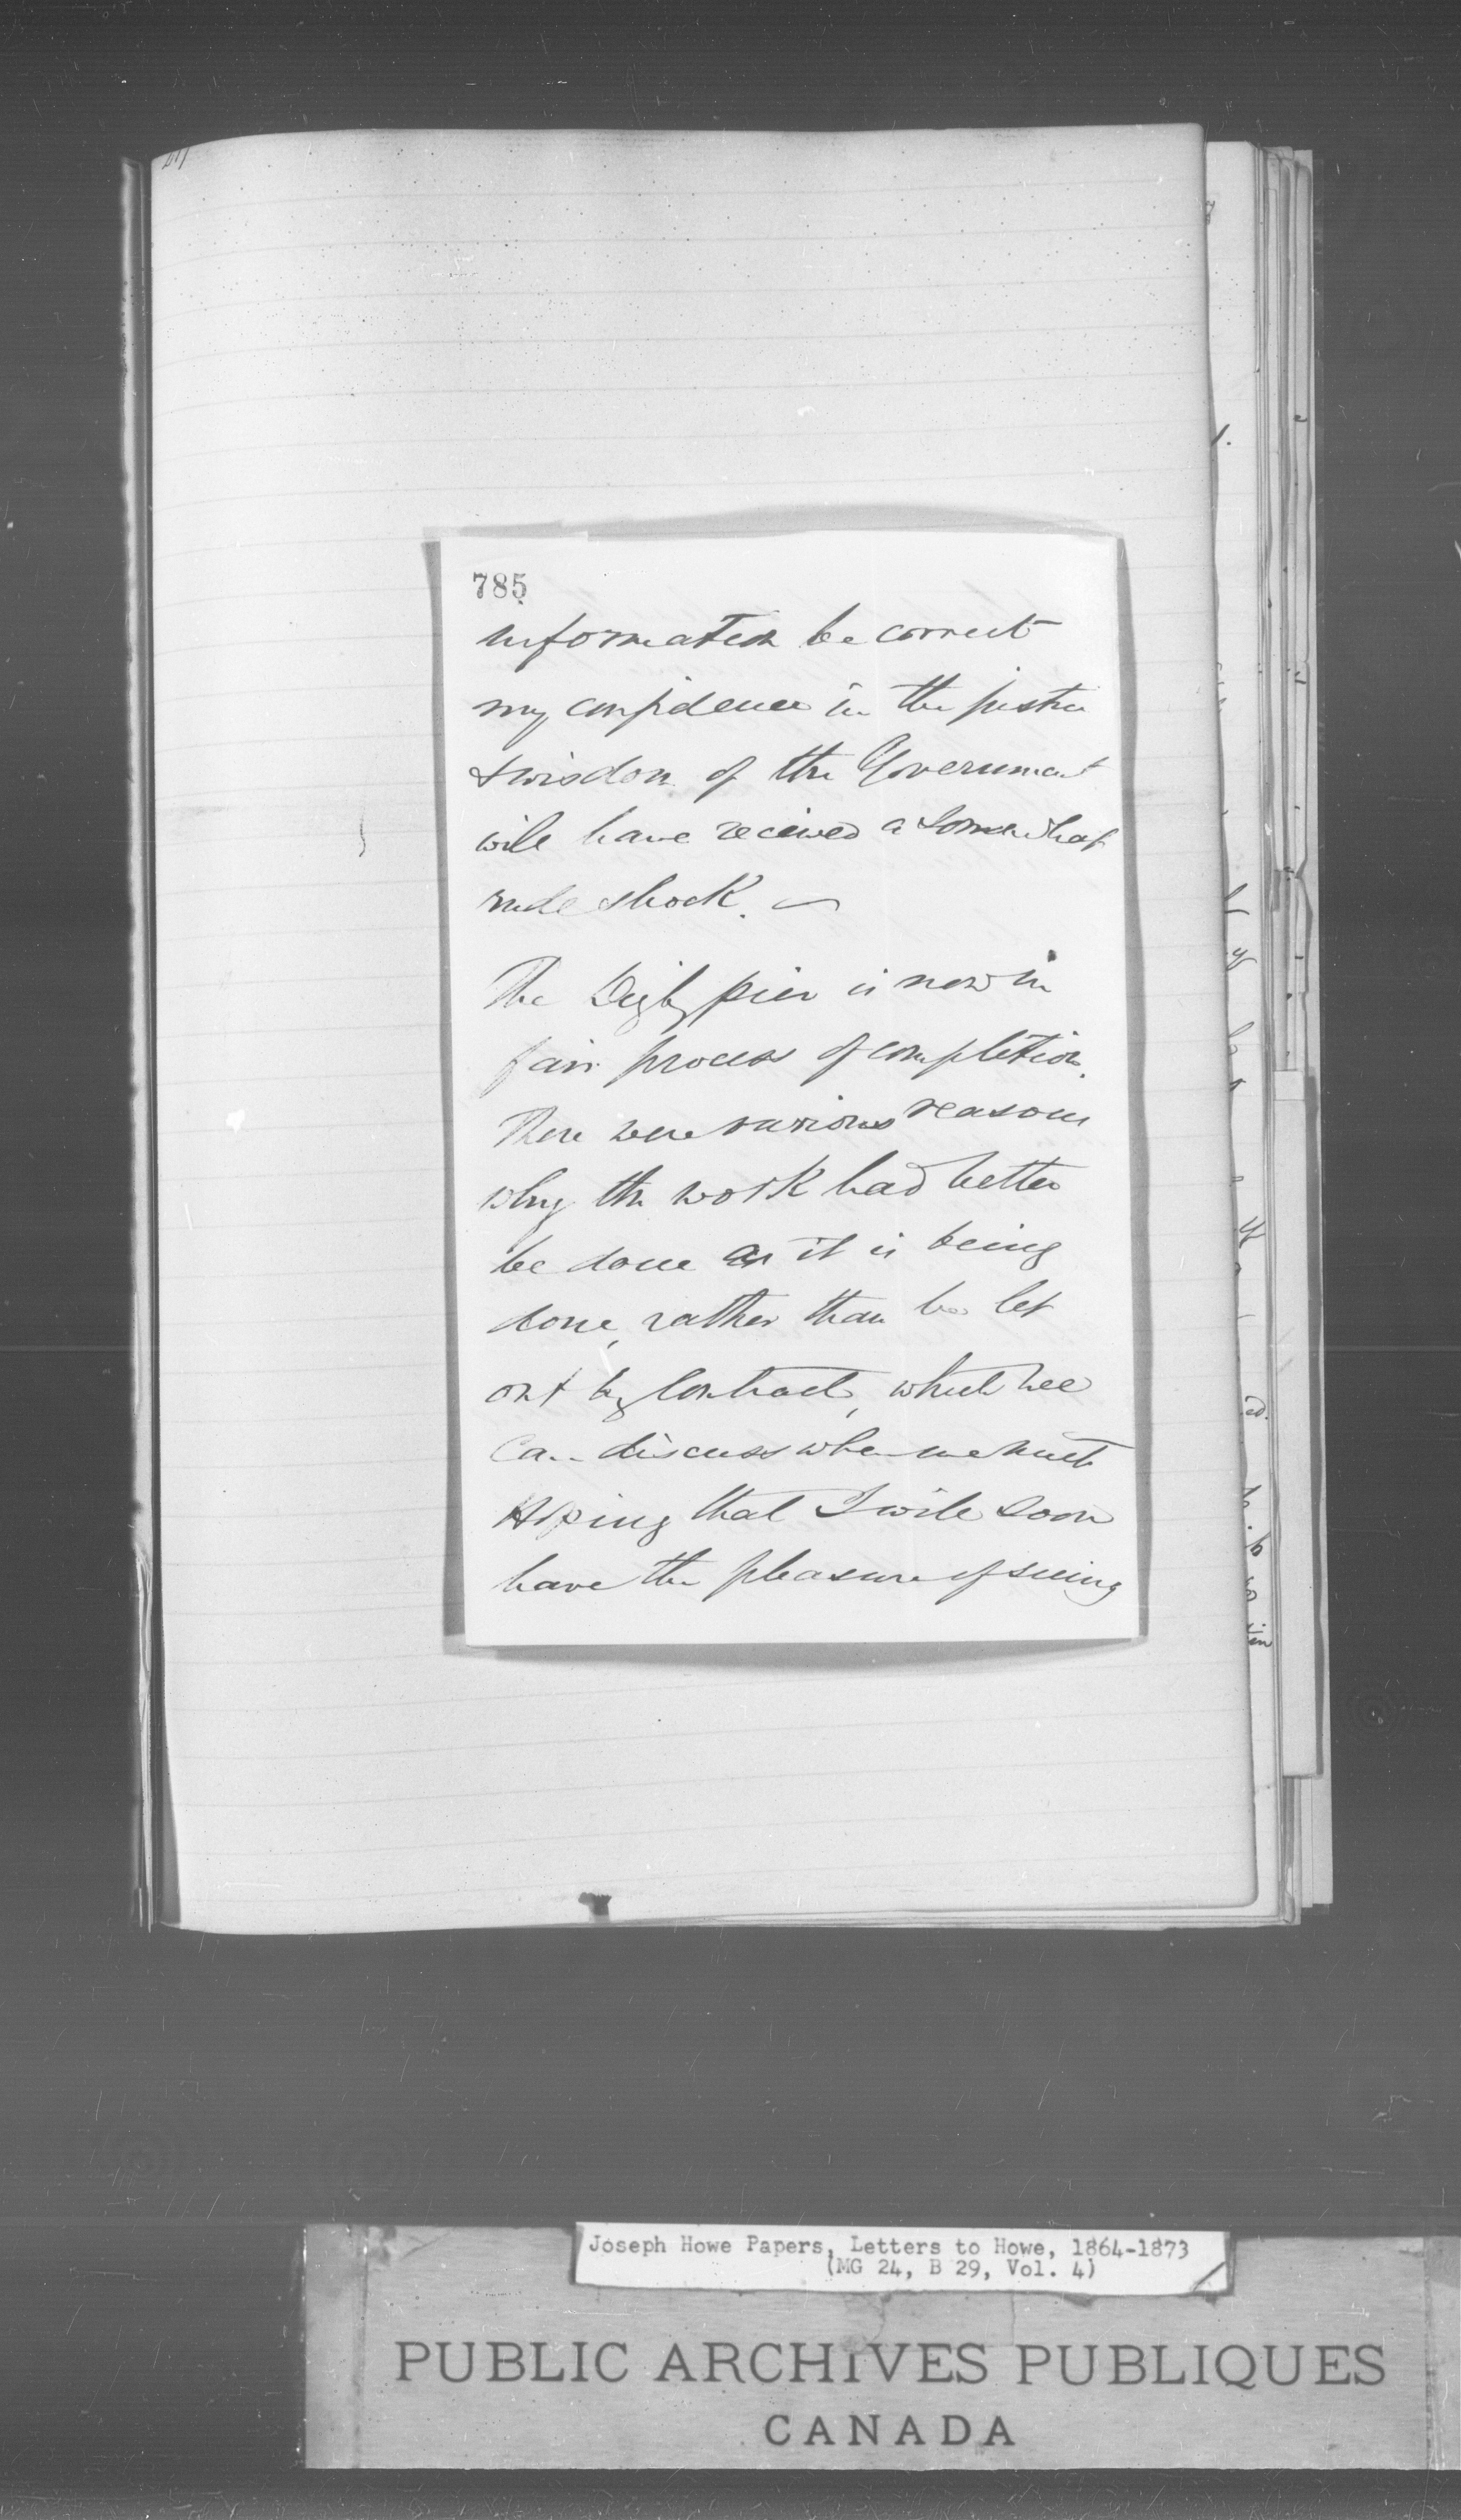 785
information be correct
my confidence in the justice
& wisdom of the Government
will have received a somewhat
rude shock. —
The Digby pier is now in
fair process of completion.
There were various reasons
why the work had better
be done as it is being
done, rather than be let
out by Contract, which we
can discuss when we meet
Hoping that I will soon
have the pleasure of seeing
Joseph Howe Papers, Letters to Howe, 1864-1873
(MG 24, B 29, Vol. 4)
PUBLIC ARCHIVES PUBLIQUES
CANADA